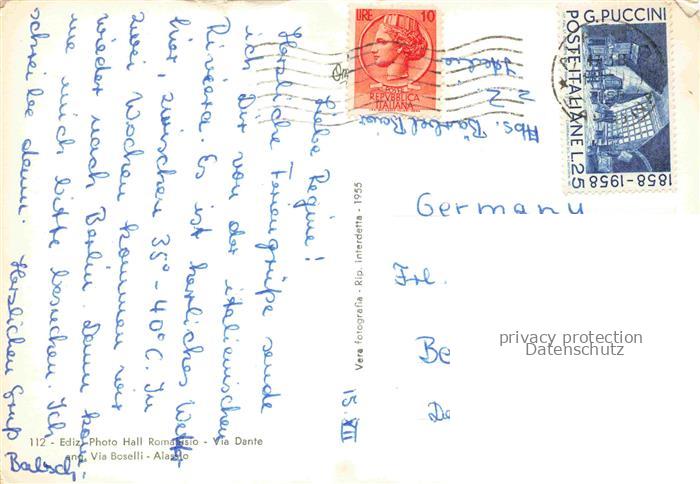 Liebe Regine!
Herzliche Feriengrüße sende
ich Dir von der italienischen
Riviera. Es ist herrliches Wetter
hier, zwischen 35° - 40°C. In
zwei Wochen kommen wir
wieder nach Berlin. Dann
me mich bitte besuchen. Ich
schreibe dann.
Herzlichen Gruß
Abs. Bärbel
z. Z.
Italien
LIRE 10
POSTE
REPVBBLICA
ITALIANA
G. PUCCINI
POSTE ITALIANE L.25
1858-1958
Germany
Frl.
Be
privacy protection
Datenschutz
Vera fotografia - Rip. interdetta - 1955
15. XII
112 - Ediz. Photo Hall Romarisio - Via Dante
ang. Via Boselli - Alassio